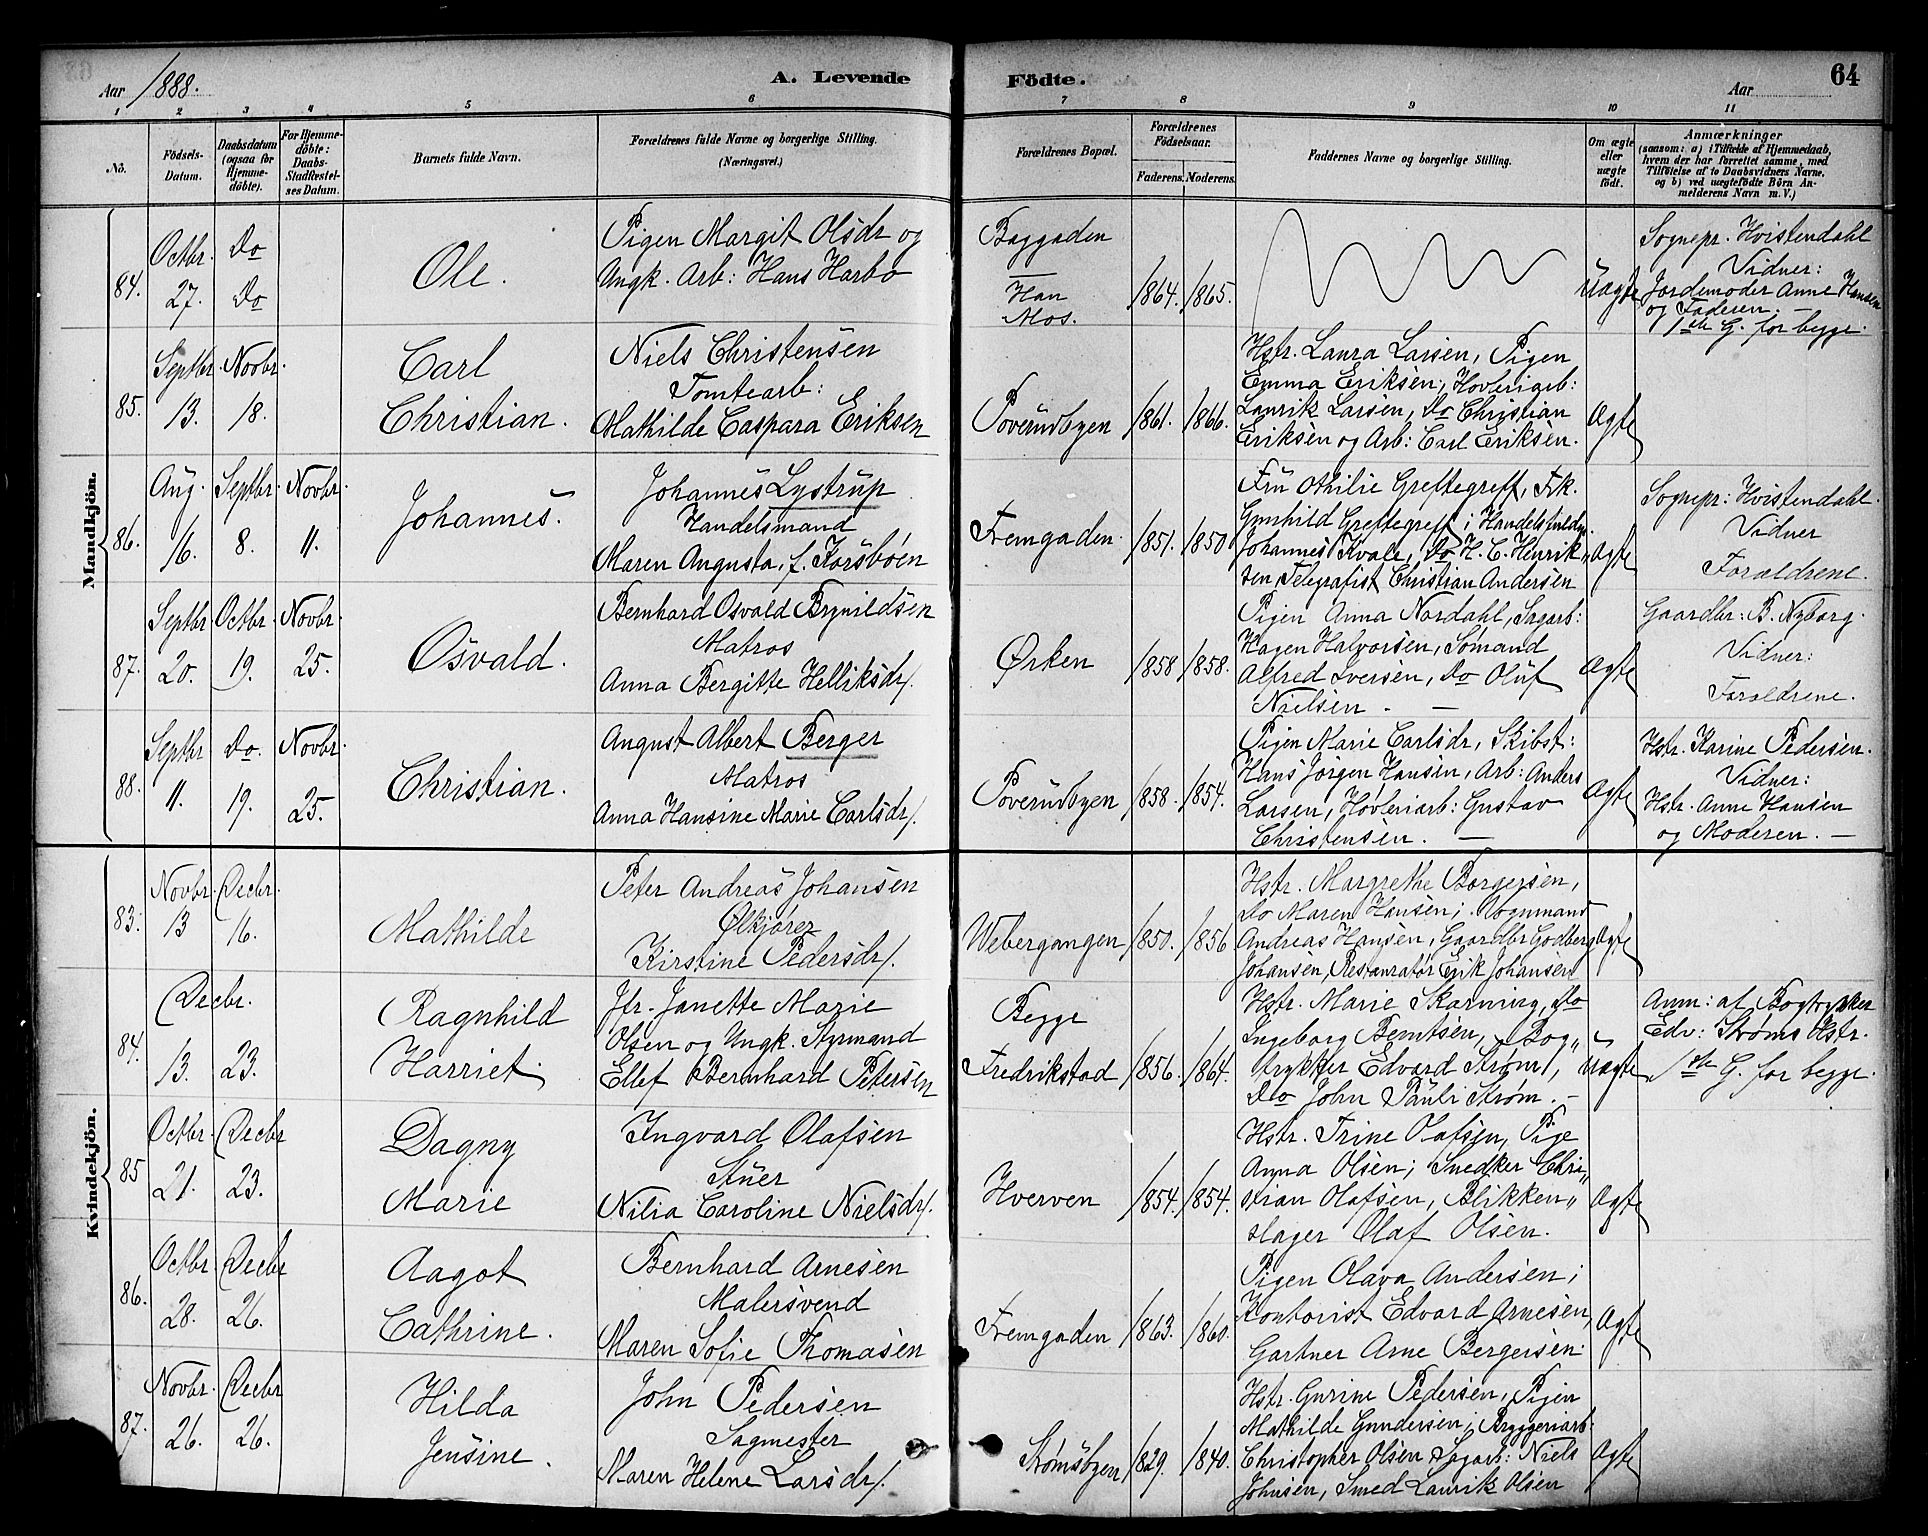 Aar 1888.
A. Levende
Födte.
Aar
64
1 2 3 4 5 6 7 8 9 10 11
No.
Födsels-Datum.
Daabsdatum (ogsaa for Hjemme-döbte).
For Hjemme-döbte: Daabs-Stadfæstel-ses Datum.
Barnets fulde Navn.
Forældrenes fulde Navne og borgerlige Stilling.
(Næringsvei.)
Forældrenes Bopæl.
Forældrenes Födselsaar.
Faderens. Moderens.
Faddernes Navne og borgerlige Stilling.
Om ægte eller uægte födt.
Anmærkninger
(saasom: a) i Tilfælde af Hjemmedaab,
hvem der har forrettet samme, med
Tilföielse af to Daabsvidners Navne,
og b) ved uægtefödte Börn An-
melderens Navn m.V.)
Mandkjön.
84.
Octbr. 27.
Do Do
Ole.
Pigen Margit Olsdr og
Ungk. Arb: Hans Harbo
Baggaden
Han
Mos.
1864. 1865.
Uægte
Sognepr. Hvistendahl
Vidner:
Jordemoder Anne Hansen
og Faderen. —
1ste G. for begge.
85.
Septbr. 13.
Novbr. 18.
Carl
Christian.
Niels Christensen
Tomtearb:
Mathilde Caspara Eriksen
Poverudbyen
1861. 1866.
Hstr. Laura Larsen, Pigen
Emma Eriksen, Hovleriarb:
Laurik Larsen, Do Christian
Eriksen og Arb: Carl Eriksen.
Ægte
86.
Aug. 16.
Septbr. 8.
Novbr. 11.
Johannes.
Johannes Lystrup
Handelsmand
Maren Augusta, f. Korsbøen
Fremgaden.
1851. 1850
Fru Othilie Greftegreff, Frk.
Gunhild Greftegreff; Handelsfuldm.
Johannes Kvale, Do H. C. Henrik„
sen, Telegrafist Christian Andersen
Ægte
Sognepr: Hvistendahl.
Vidner
Forældrene.
87.
Septbr 20.
Octbr. 19.
Novbr. 25.
Osvald.
Bernhard Osvald Brynildsen
Matros
Anna Bergitte Helliksdr/.
Ørken
1858 1858.
Pigen Anna Nordahl, Sagarb:
Hagen Halvorsen, Sømand
Alfred Iversen, Do Oluf
Nielsen. —
Ægte
Gaardbr: B. Nyborg.
Vidner:
Forældrene.
88.
Septbr 11.
Do. 19.
Novbr. 25.
Christian.
August Albert Berger
Matros
Anna Hansine Marie Carlsdr/.
Poverudbyen
1858. 1854.
Pigen Marie Carlsdr, Skibst:
Hans Jørgen Hansen, Arb: Anders
Larsen, Høvleriarb: Gustav
Christensen. —
Ægte
Hstr. Karine Pedersen.
Vidner:
Hstr. Anne Hansen
og Moderen. —
Kvindekjön.
83.
Novbr. 13
Decbr. 16.
Mathilde
Peter Andreas Johansen
Ølkjører
Kirstine Pedersdr/.
Webergangen
1850. 1856
Hstr. Margrethe Borgersen,
Do Maren Hansen; Vognmand
Andreas Hansen, Gaardbr Godberg
Johansen, Restauratør Erik Johansen
Ægte
84.
Decbr.
13. 23.
Ragnhild
Harriet.
Jfr. Janette Marie
Olsen og Ungk. Styrmand
Ellef Bernhard Petersen
Begge
Fredrikstad
1856. 1864.
Hstr. Marie Skarning, Do
Ingeborg Berntsen, Bog„
trykker Edvard Strøm,
Do John Pauli Strøm. —
Uægte
Anm: af Bogtrykker
Edv: Strøms Hstr.
1ste G. for begge.
85
Octbr. 21.
Decbr 23.
Dagny
Marie
Ingvard Olafsen
Stuer
Nilia Caroline Nielsdr/.
Hverven
1854. 1854.
Hstr. Trine Olafsen, Pige
Anna Olsen; Snedker Chri„
stian Olafsen, Blikken„
slager Olaf Olsen.
Ægte
86.
Octbr 28.
Decbr 26.
Aagot
Cathrine.
Bernhard Arnesen
Malersvend
Maren Sofie Thomasen
Fremgaden
1863. 1860.
Pigen Olava Andersen;
Kontorist Edvard Arnesen,
Gartner Arne Bergersen.
Ægte
87.
Novbr. 26.
Decbr 26.
Hilda
Jensine.
John Pedersen
Sagmester
Maren Helene Larsdr/.
Strømsbyen
1829. 1840.
Hstr. Gurine Pedersen, Pigen
Mathilde Gundersen; Bryggeriarb:
Christopher Olsen, Sagarb: Niels
Johnsen, Smed Laurik Olsen
Ægte